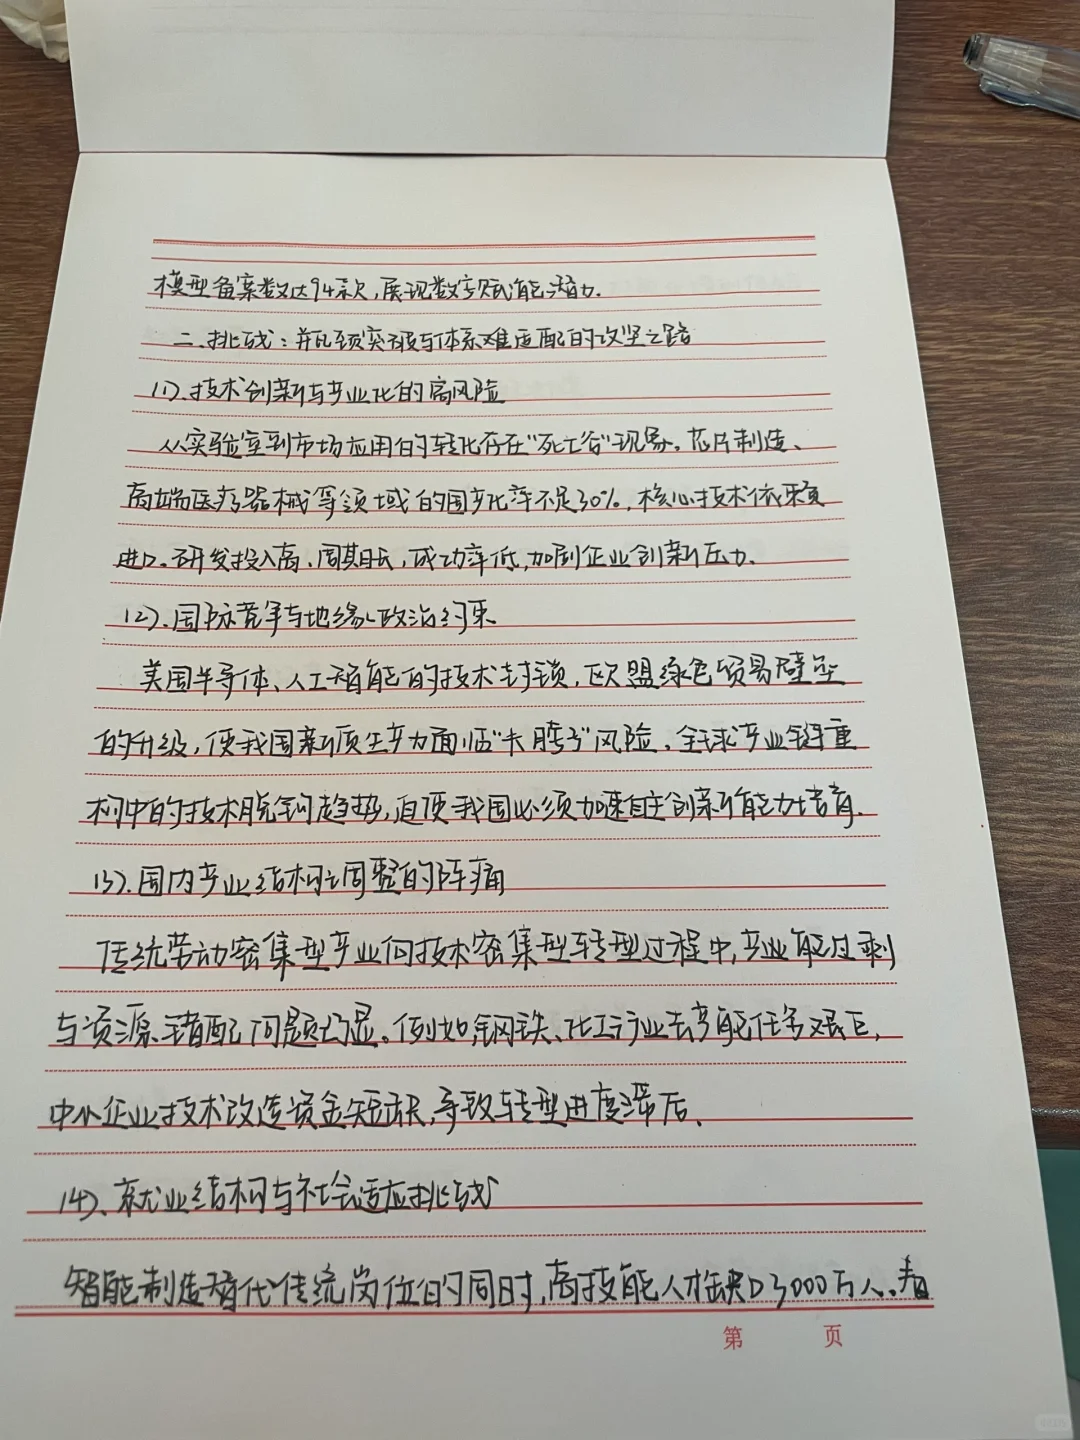 模型备案数达94款,展现数字赋能潜力.
二、挑战:瓶颈突破与体系难适配的攻坚之路
(1).技术创新与产业化的高风险
从实验室到市场应用的转化存在"死亡谷"现象。芯片制造、
高端医疗器械等领域的国产化率不足30%,核心技术依赖
进口。研发投入高、周期长,成功率低,加剧企业创新压力.
(2).国际竞争与地缘政治约束
美国半导体、人工智能的技术封锁,欧盟绿色贸易壁垒
的升级,使我国新质生产力面临"卡脖子"风险。全球产业链重
构中的技术脱钩趋势,迫使我国必须加速自主创新能力培育.
(3).国内产业结构调整的阵痛
传统劳动密集型产业向技术密集型转型过程中,产业能过剩
与资源错配问题凸显。例如,钢铁、化工行业去产能任务艰巨,
中小企业技术改造资金短缺,导致转型进度滞后.
(4)、就业结构与社会适应挑战
智能制造替代传统岗位的同时,高技能人才缺口3000万人。
第 页